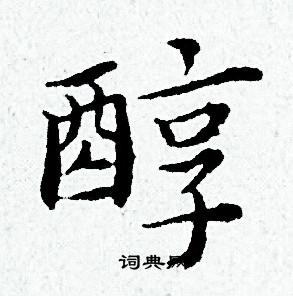 醇
词典网